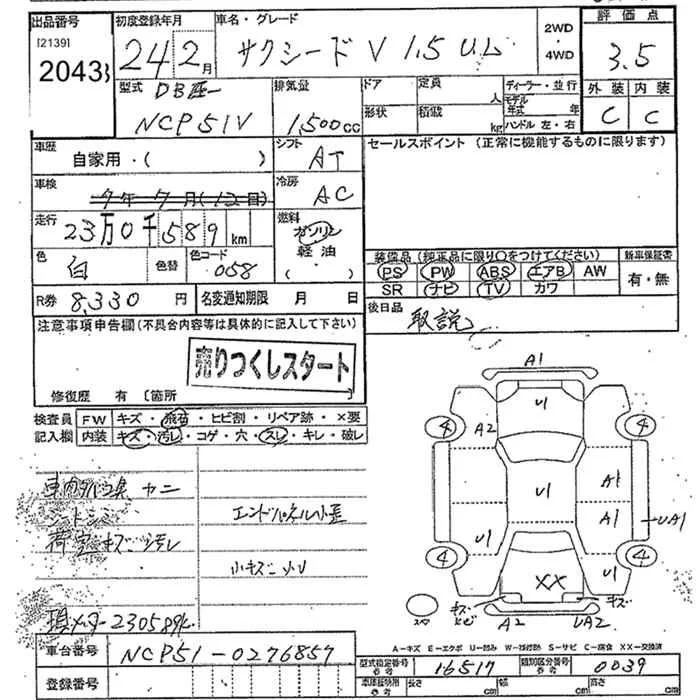 出品番号 初度登録年月 車名・グレード 2WD・4WD 評価点
[2139]
2043 24 2月 サクシード V 1.5 UL 3.5
型式 DB座一 排気量 ドア 定員 人 ディーラー・並行 外装 内装
NCP51V 1,500cc 形状 積載 kg モデル年式 年 ハンドル 左・右 C C
車歴 自家用・( ) シフト AT セールスポイント (正常に機能するものに限ります)
車検 7年 7月(12日) 冷房 AC
走行 23万0千589km 燃料 ガソリン 軽油 ( )
色 白 色替 色コード 058
装備品 (純正品に限り○をつけてください) 新車保証書
PS PW ABS エアB AW 有・無
SR ナビ TV カワ
R券 8,330円 名変通知期限 月 日 後日品
取説
注意事項申告欄(不具合内容等は具体的に記入して下さい)
売りつくしスタート
修復歴 有 〔箇所 〕
検査員 FW キズ・飛石・ヒビ割・リペア跡・×要
記入欄 内装 キズ・汚レ・コゲ・穴・スレ・キレ・破レ
シートシミ エンドパネル小歪
荷室キズ汚レ
小キズ
現メーター230589k
A1
U1
4 A2 4
U1 A1
A1 UA1
U1 U1
4 XX 4
スペア キズ ヒビ A2 UA2 キズ
A-キズ E-エクボ U-凹み W-補修跡 S-サビ C-腐食 XX-交換済
車台番号 NCP51-0276857
型式指定番号 参考 16517 類別区分番号 参考 0039
登録番号 車庫証明用 参考 長さ cm 幅 cm 高さ cm